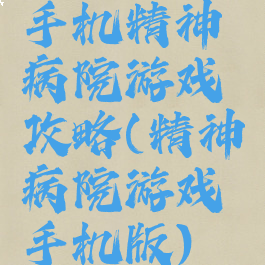 手机精神
病院游戏
攻略(精神
病院游戏
手机版)